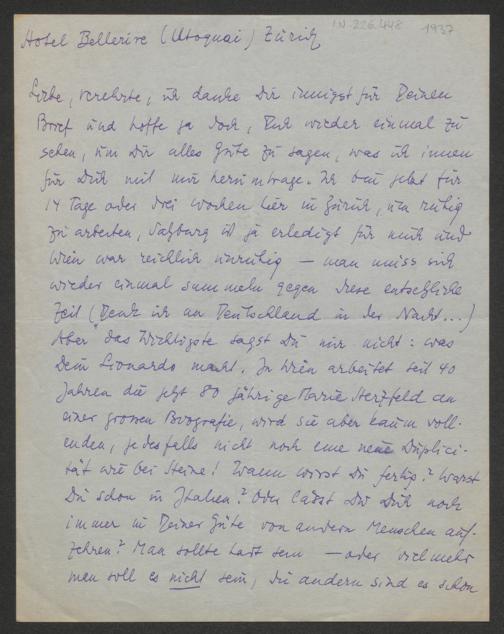 I.N. 226.448 1937
Hotel Bellerive (Utoquai) Zürich
Liebe, verehrte, ich danke Dir innigst für Deinen
Brief und hoffe ja doch, Dich wieder einmal zu
sehen, um Dir alles Gute zu sagen, was ich innen
für Dich mit mir herumtrage. Ich bin jetzt für
14 Tage oder drei Wochen hier in Zürich, um ruhig
zu arbeiten, Salzburg ist ja erledigt für mich und
Wien war reichlich unruhig — man muss sich
wieder einmal sammeln gegen diese entsetzliche
Zeit (Denk ich an Deutschland in der Nacht...)
Aber das Wichtigste sagst Du mir nicht: was
Dein Lionardo macht. In Wien arbeitet seit 40
Jahren die jetzt 80 jährige Marie Herzfeld an
einer grossen Biografie, wird sie aber kaum voll-
enden, jedesfalls nicht noch eine neue Duplici-
tät wie bei Heine! Wann wirst Du fertig? Warst
Du schon in Italien? Oder lässt Du Dich noch
immer in Deiner Güte von andern Menschen auf-
zehren? Man sollte hart sein — oder vielmehr
man soll es nicht sein, die andern sind es schon